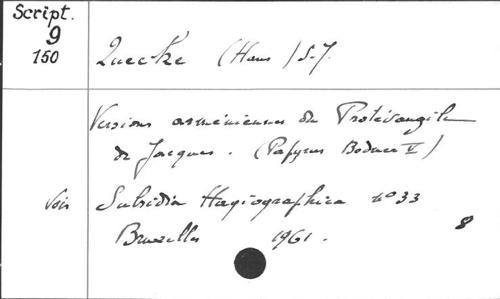 Script.
9
150
Quecke (Hans) S.J.
Versions arméniennes du Protévangile
de Jacques. (Papyrus Bodmer V)
Voir Subsidia Hagiographica nº 33
Bruxelles 1961.
8